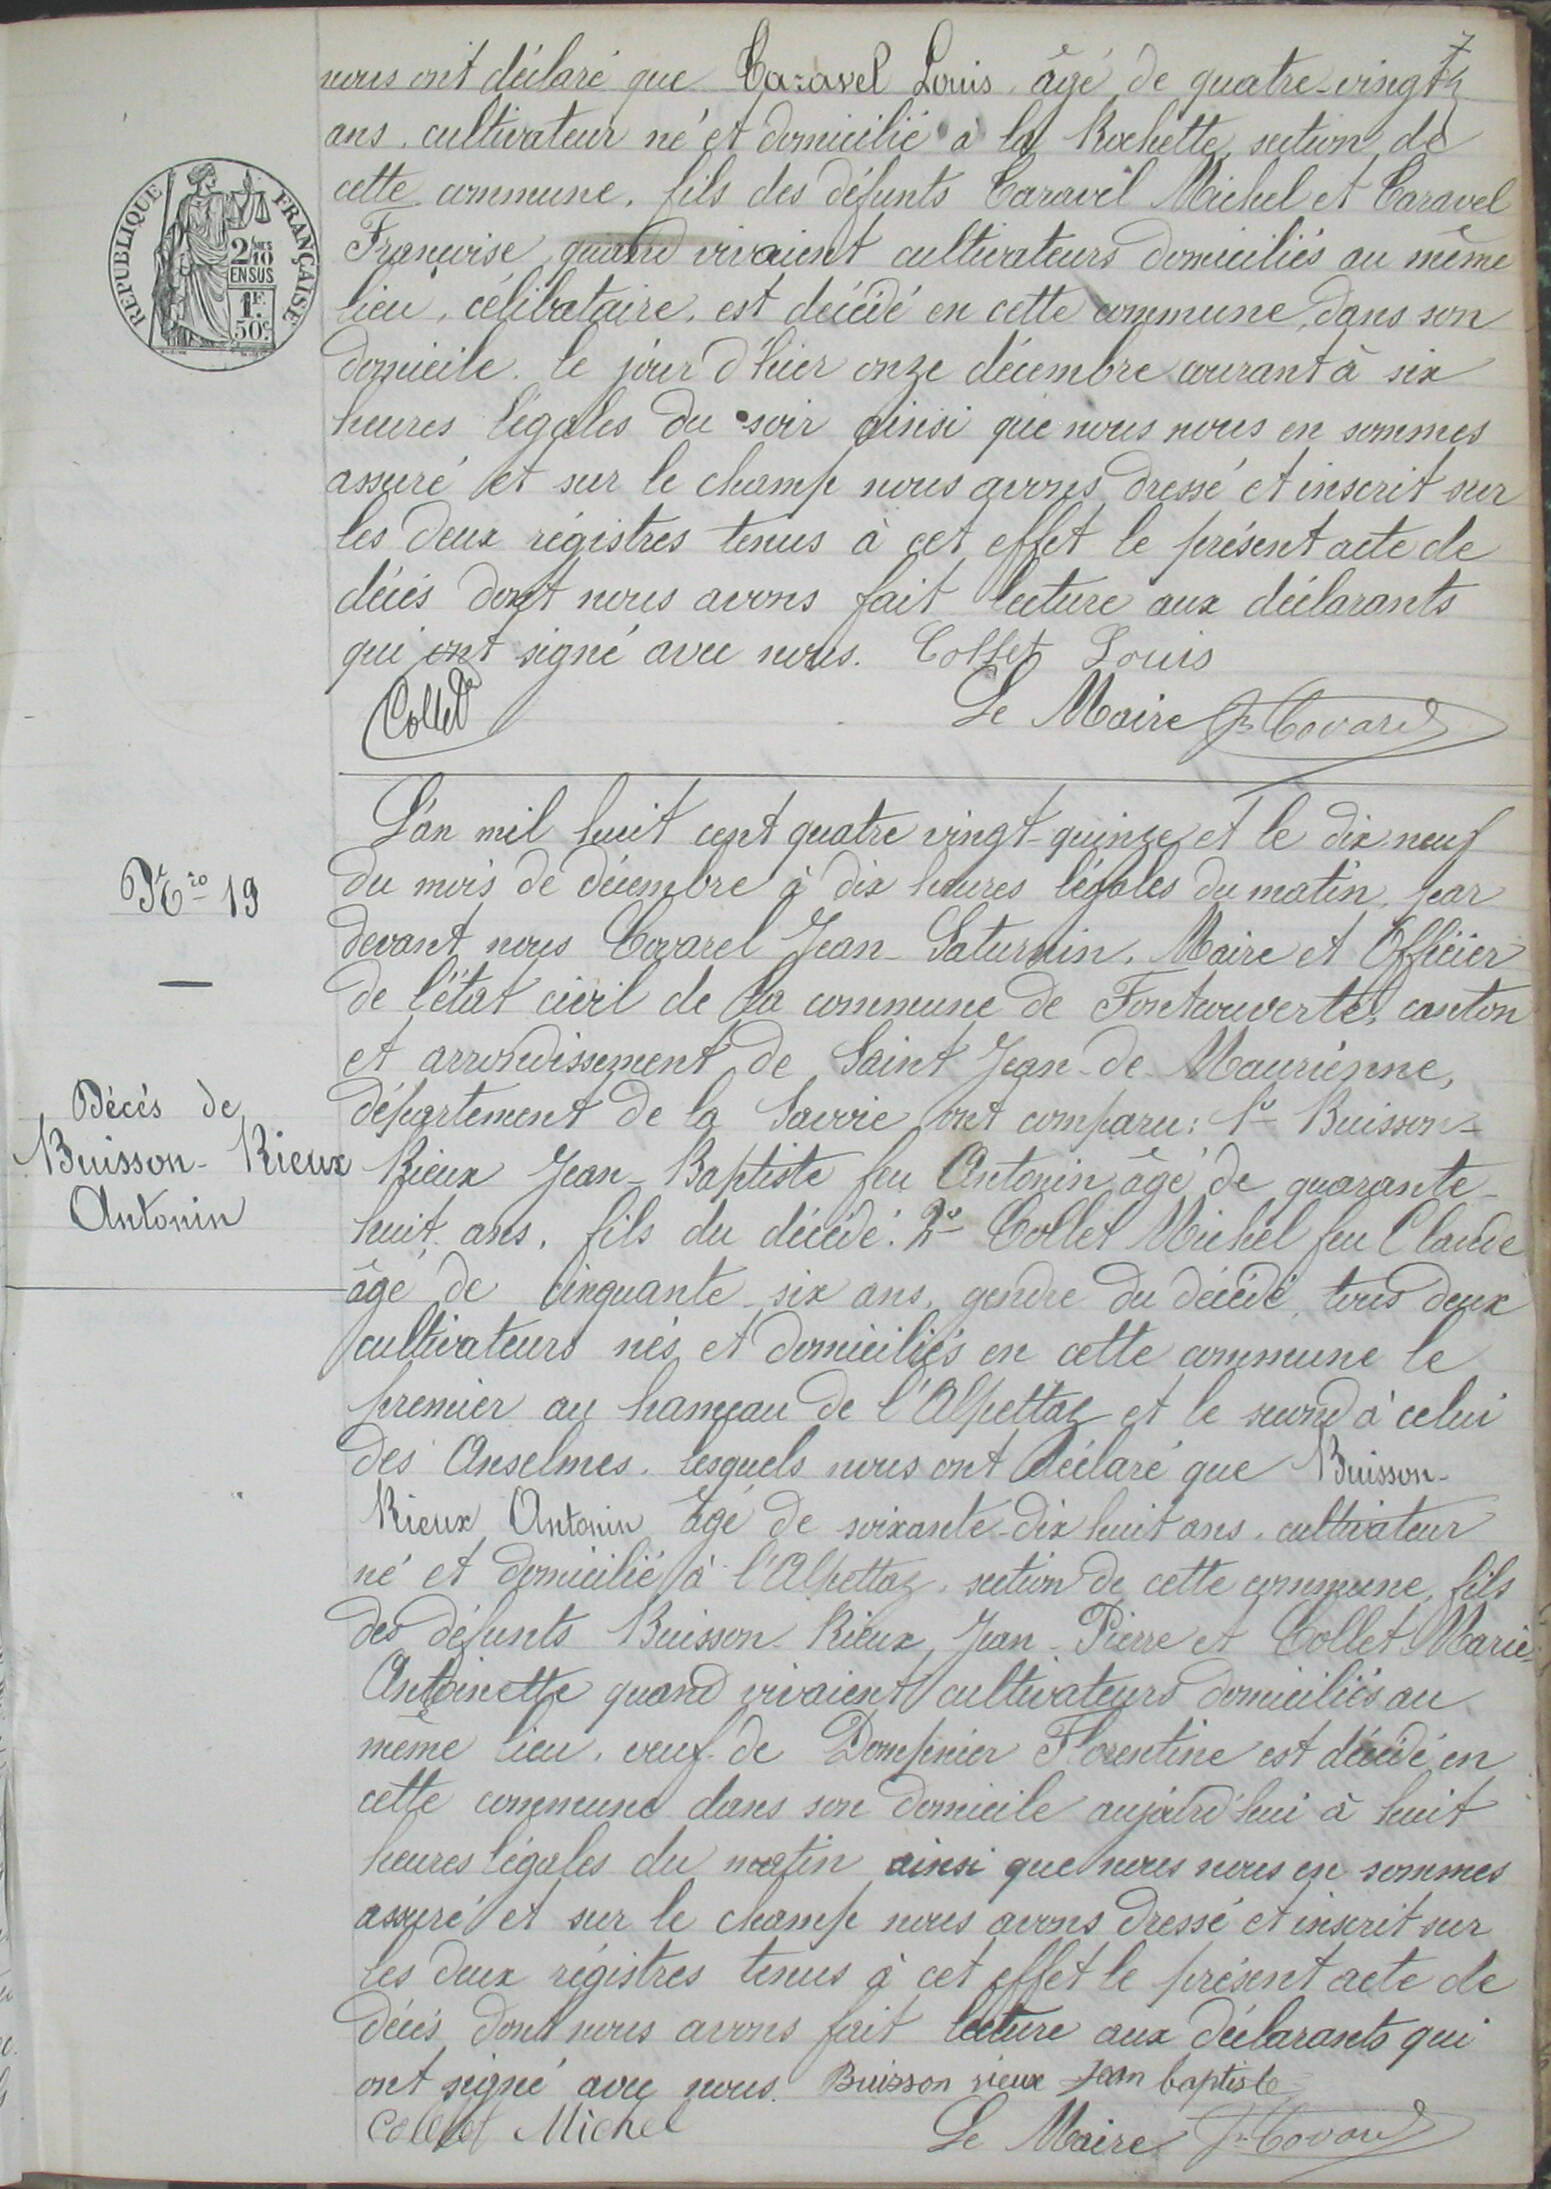 7
nous ont déclaré que Caravel Louis, âgé de quatre-vingt
ans, cultivateur né et domicilié à la Rochette, section de
cette commune, fils des défunts Caravel Michel et Caravel
Françoise, quand vivaient cultivateurs domiciliés au même
lieu, célibataire, est décédé en cette commune, dans son
domicile, le jour d'hier onze décembre courant à six
heures légales du soir ainsi que nous nous en sommes
assuré et sur le champ nous avons dressé et inscrit sur
les deux régistres tenus à cet effet le présent acte de
décès dont nous avons fait lecture aux déclarants
qui ont signé avec nous. Collet Louis
Collet
Le Maire Covarel
REPUBLIQUE FRANÇAISE
2/10
EN SUS
1F.
50c.
No 19
Décès de
Buisson-Rieux
Antonin
L'an mil huit cent quatre vingt-quinze et le dix-neuf
du mois de décembre à dix heures légales du matin, par
devant nous Covarel Jean-Saturnin, Maire et Officier
de l'état civil de la commune de Fontcouverte, canton
et arrondissement de Saint Jean-de-Maurienne,
département de la Savoie ont comparu: 1o Buisson-
Rieux Jean-Baptiste feu Antonin, âgé de quarante-
huit ans, fils du décédé. 2o Collet Michel feu Claude
âgé de cinquante-six ans, gendre du décédé, tous deux
cultivateurs nés et domiciliés en cette commune le
premier au hameau de l'Alpettaz et le second à celui
des Anselmes. lesquels nous ont déclaré que Buisson-
Rieux Antonin âgé de soixante-dix huit ans, cultivateur
né et domicilié à l'Alpettaz, section de cette commune, fils
des défunts Buisson-Rieux, Jean-Pierre et Collet Marie-
Antoinette quand vivaient cultivateurs domiciliés au
même lieu, veuf de Dompnier Florentine est décédé en
cette commune dans son domicile aujourd'hui à huit
heures légales du matin ainsi que nous nous en sommes
assuré et sur le champ nous avons dressé et inscrit sur
les deux régistres tenus à cet effet le présent acte de
décès dont nous avons fait lecture aux déclarants qui
ont signé avec nous. Buisson rieux Jean baptiste
Collet Michel
Le Maire Covarel